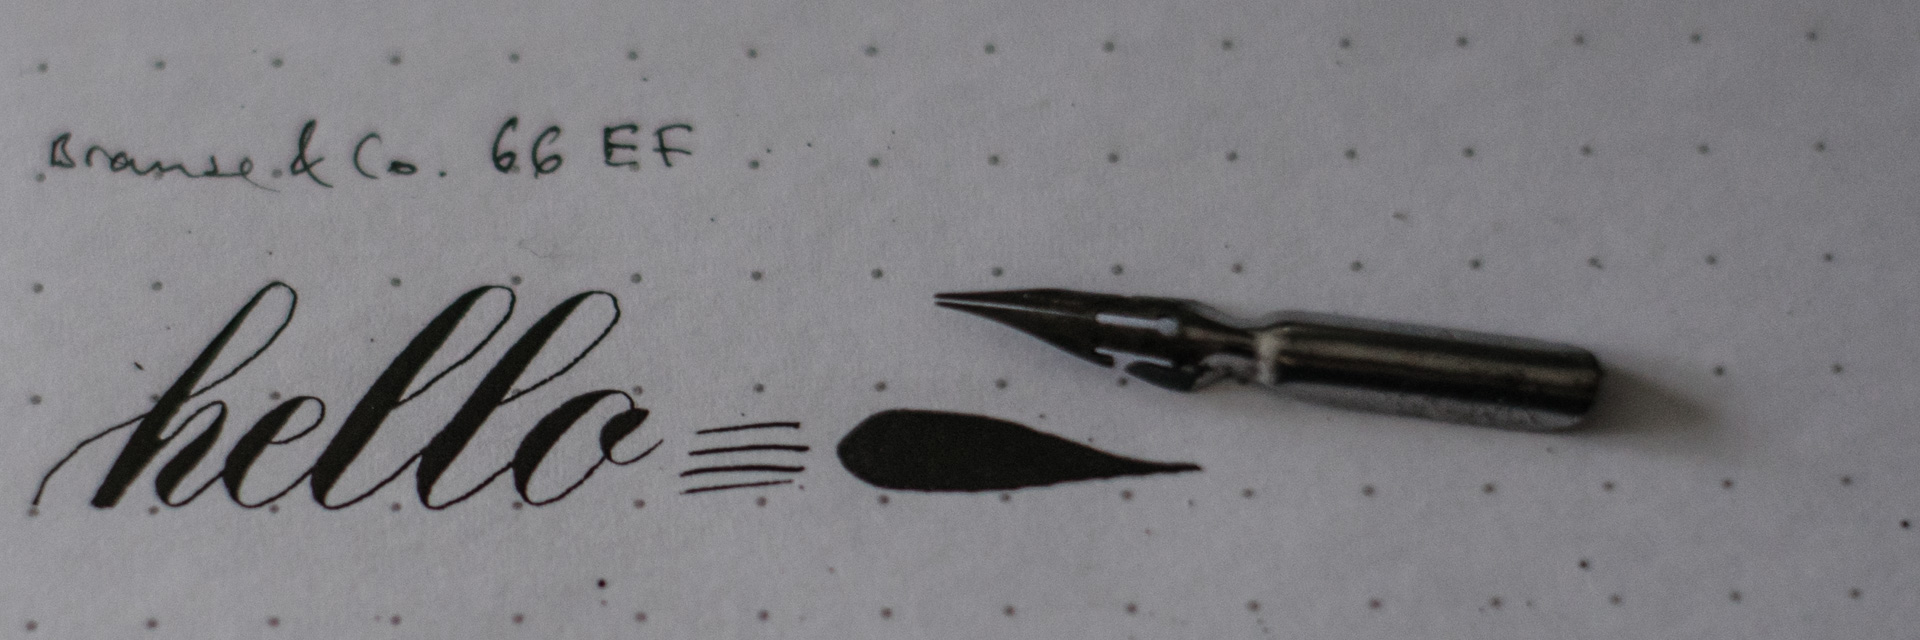 Brause & Co. 66 EF
hello